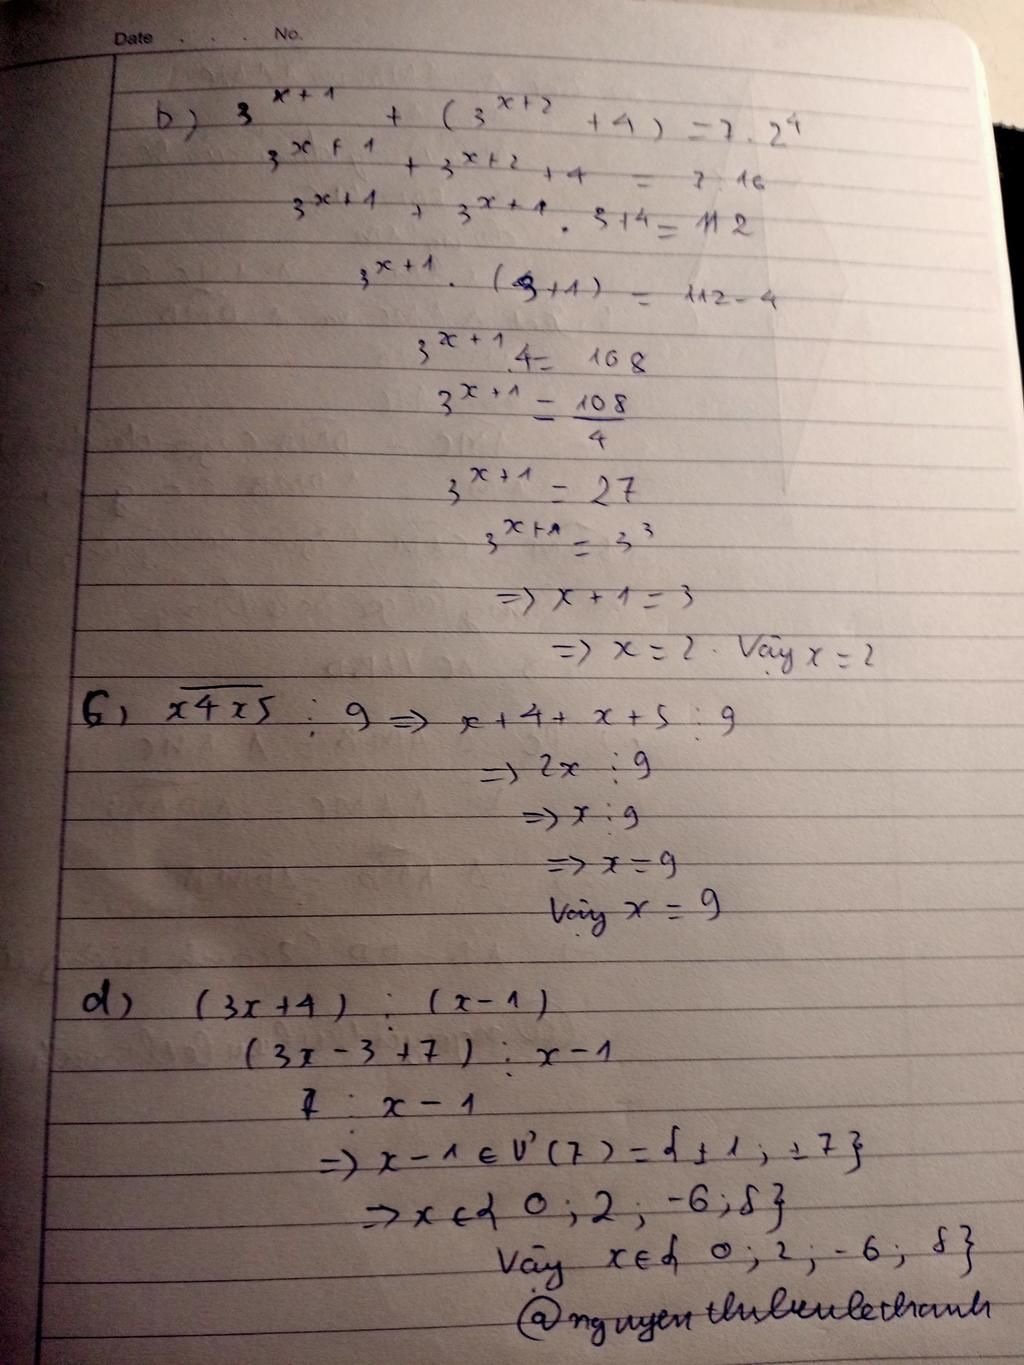 Date . . . No.
b) 3^{x+1} + (3^{x+2} + 4) = 7 . 2^4
3^{x+1} + 3^{x+2} + 4 = 7 . 16
3^{x+1} + 3^{x+1} . 3 + 4 = 112
3^{x+1} . (3 + 1) = 112 - 4
3^{x+1} . 4 = 108
3^{x+1} = 108/4
3^{x+1} = 27
3^{x+1} = 3^3
=> x + 1 = 3
=> x = 2 . Vậy x = 2
c) \overline{x4x5} ⋮ 9 => x + 4 + x + 5 ⋮ 9
=> 2x ⋮ 9
=> x ⋮ 9
=> x = 9
Vậy x = 9
d) (3x + 4) ⋮ (x - 1)
(3x - 3 + 7) ⋮ x - 1
7 ⋮ x - 1
=> x - 1 ∈ Ư(7) = {±1; ±7}
=> x ∈ {0; 2; -6; 8}
Vậy x ∈ {0; 2; -6; 8}